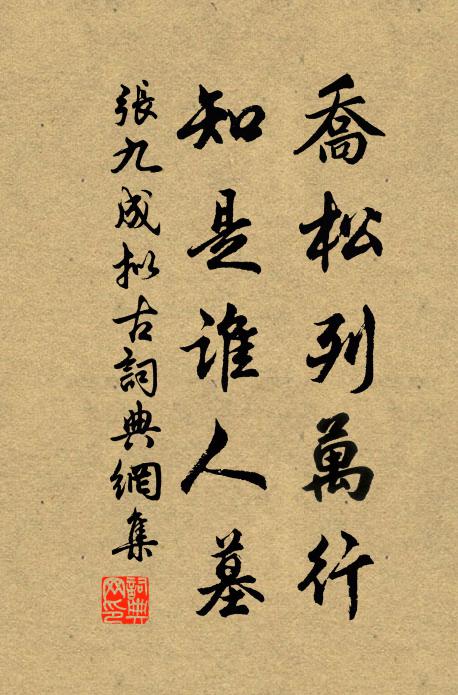 喬松列萬行
知是誰人墓
張九成拟古詞典網集
詞典
网印